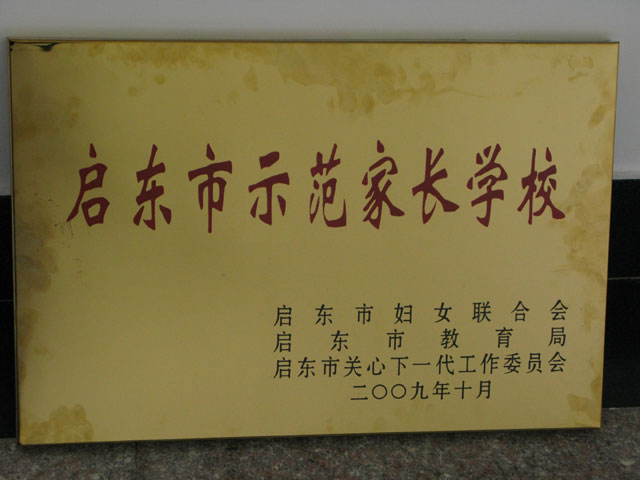 启东市示范家长学校
启东市妇女联合会
启东市教育局
启东市关心下一代工作委员会
二〇〇九年十月